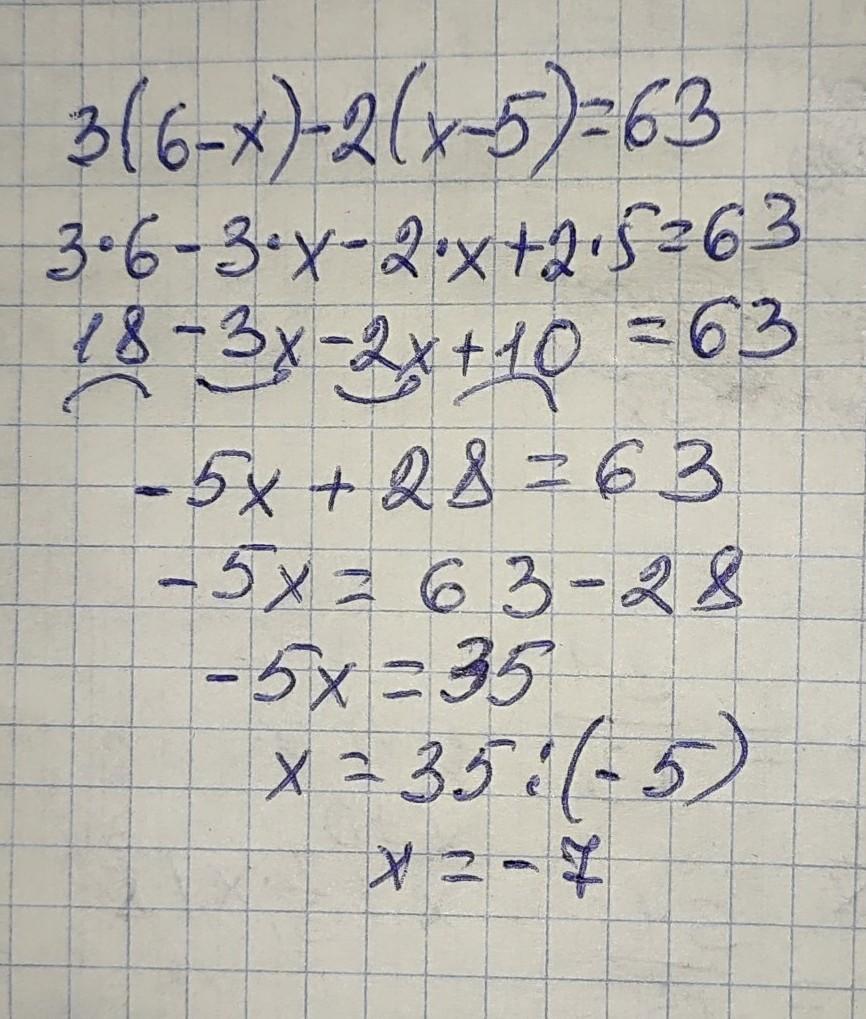 3(6-x)-2(x-5)=63
3·6-3·x-2·x+2·5=63
18-3x-2x+10=63
-5x+28=63
-5x=63-28
-5x=35
x=35:(-5)
x=-7